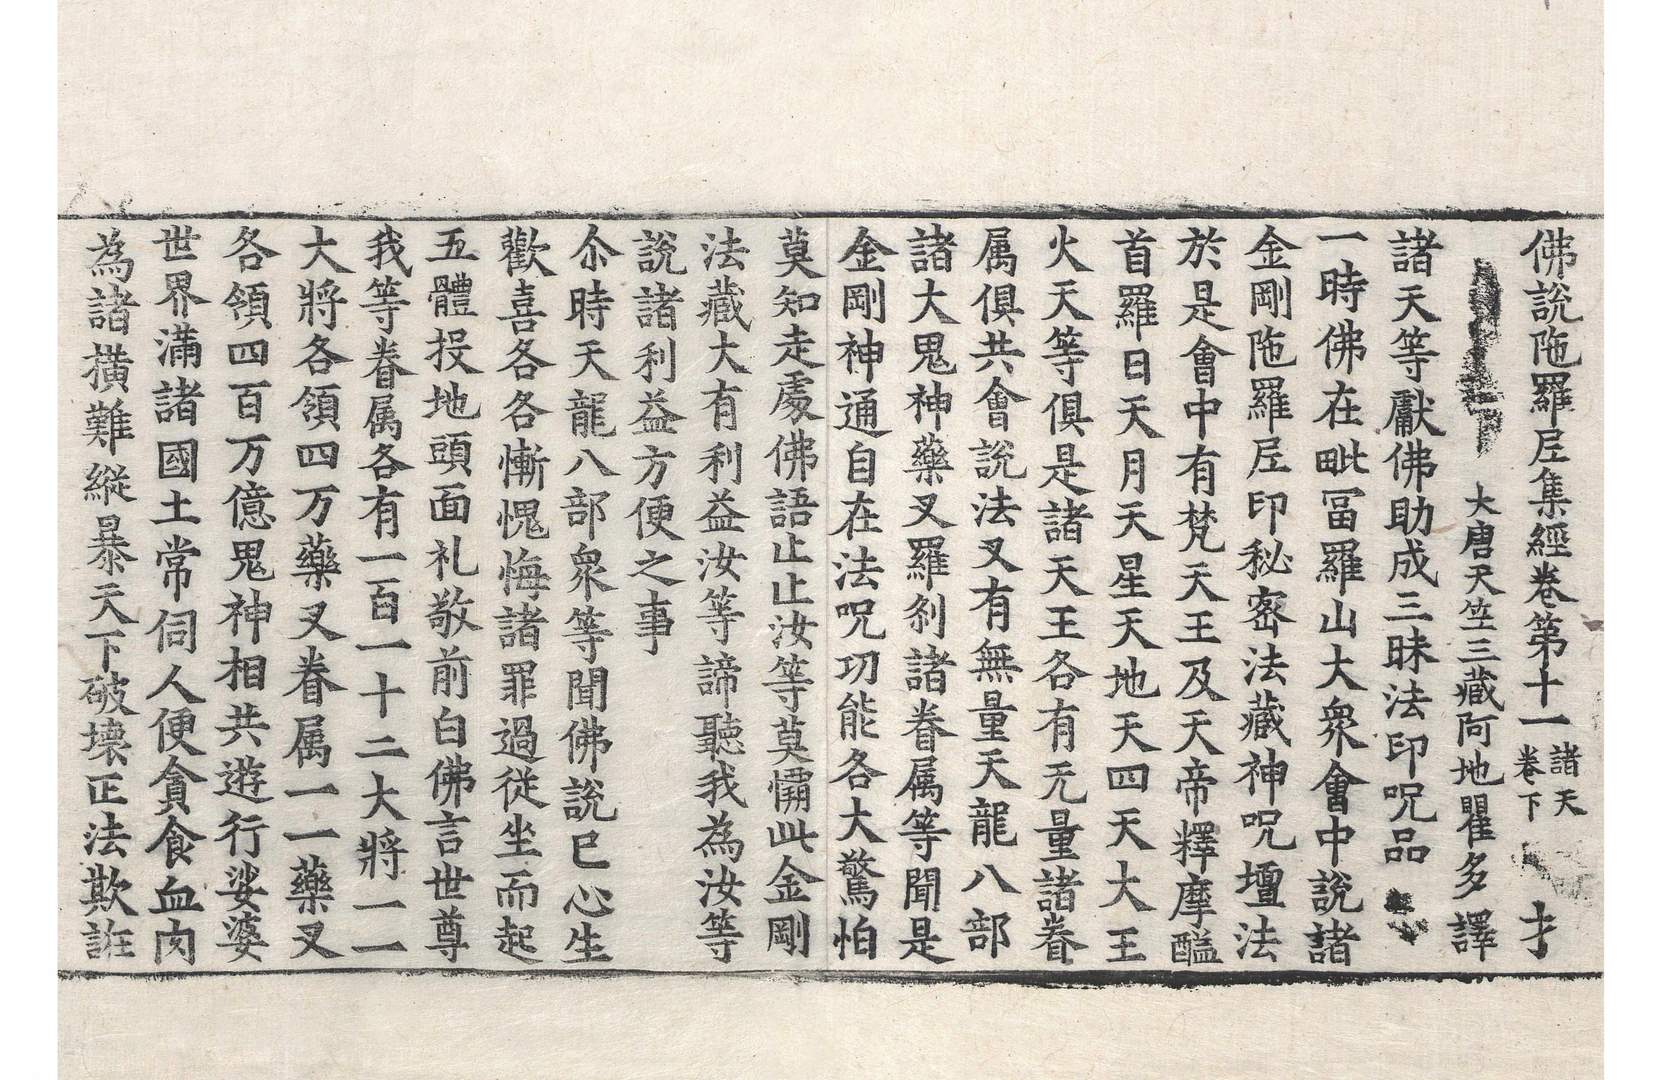 佛說陁羅尼集經卷第十一 諸天卷下 才
大唐天竺三藏阿地瞿多譯
諸天等獻佛助成三昧法印呪品
一時佛在毗冨羅山大衆會中說諸
金剛陁羅尼印秘密法藏神呪壇法
於是會中有梵天王及天帝釋摩醯
首羅日天月天星天地天四天大王
火天等俱是諸天王各有无量諸眷
属俱共會說法又有無量天龍八部
諸大鬼神藥叉羅剎諸眷属等聞是
金剛神通自在法呪功能各大驚怕
莫知走處佛語止止汝等莫懼此金剛
法藏大有利益汝等諦聽我為汝等
說諸利益方便之事
尒時天龍八部衆等聞佛說已心生
歡喜各各慚愧悔諸罪過從坐而起
五體投地頭面礼敬前白佛言世尊
我等眷属各有一百一十二大將一一
大將各領四万藥叉眷属一一藥叉
各領四百万億鬼神相共遊行娑婆
世界滿諸國土常伺人便貪食血肉
為諸橫難縱暴天下破壞正法欺誑